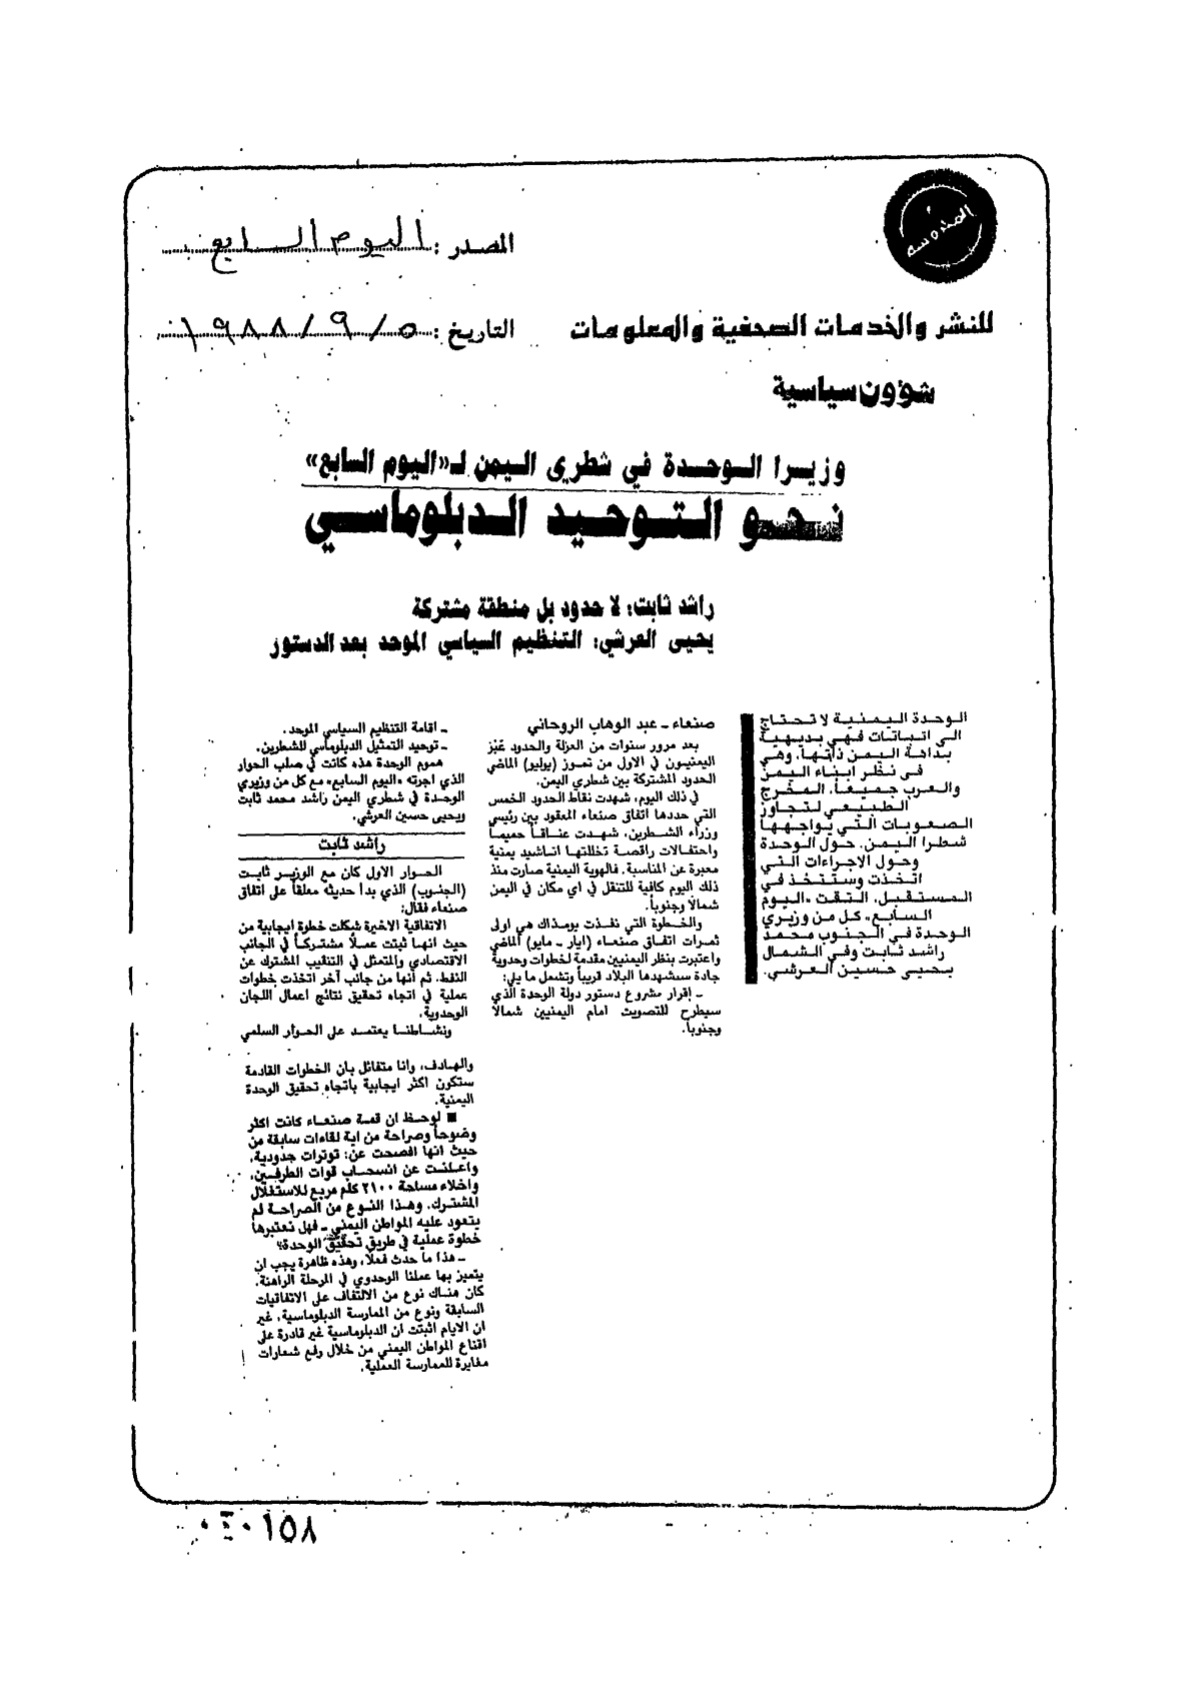 المصدر : اليوم السابع
للنشر والخدمات الصحفية والمعلومات
التاريخ : ٥ / ٩ / ١٩٨٨
شؤون سياسية
وزيرا الوحدة في شطري اليمن لـ«اليوم السابع»
نحو التوحيد الدبلوماسي
راشد ثابت: لا حدود بل منطقة مشتركة
يحيى العرشي: التنظيم السياسي الموحد بعد الدستور
الوحدة اليمنية لا تحتاج
الى اثباتات فهي بديهية
بداهة اليمن ذاتها. وهي
في نظر ابناء اليمن
والعرب جميعاً، المخرج
الطبيعي لتجاوز
الصعوبات التي يواجهها
شطرا اليمن. حول الوحدة
وحول الاجراءات التي
اتخذت وستتخذ في
المستقبل، التقت «اليوم
السابع» كل من وزيري
الوحدة في الجنوب محمد
راشد ثابت وفي الشمال
يحيى حسين العرشي.
صنعاء ـ عبد الوهاب الروحاني
بعد مرور سنوات من العزلة والحدود عَبَر
اليمنيون في الاول من تموز (يوليو) الماضي
الحدود المشتركة بين شطري اليمن.
في ذلك اليوم، شهدت نقاط الحدود الخمس
التي حددها اتفاق صنعاء المعقود بين رئيسي
وزراء الشطرين، شهدت عناقاً حميماً
واحتفالات راقصة تخللتها اناشيد يمنية
معبرة عن المناسبة. فالهوية اليمنية صارت منذ
ذلك اليوم كافية للتنقل في اي مكان في اليمن
شمالاً وجنوباً.
والخطوة التي نفذت يومذاك هي اولى
ثمرات اتفاق صنعاء (ايار ـ مايو) الماضي
واعتبرت بنظر اليمنيين مقدمة لخطوات وحدوية
جادة ستشهدها البلاد قريباً وتشمل ما يلي:
ـ إقرار مشروع دستور دولة الوحدة الذي
سيطرح للتصويت امام اليمنيين شمالاً
وجنوباً.
ـ اقامة التنظيم السياسي الموحد.
ـ توحيد التمثيل الدبلوماسي للشطرين.
هموم الوحدة هذه كانت في صلب الحوار
الذي اجرته «اليوم السابع» مع كل من وزيري
الوحدة في شطري اليمن راشد محمد ثابت
ويحيى حسين العرشي.
راشد ثابت
الحوار الاول كان مع الوزير ثابت
(الجنوب) الذي بدأ حديثه معلقاً على اتفاق
صنعاء فقال:
الاتفاقية الاخيرة شكلت خطوة ايجابية من
حيث انها ثبتت عملاً مشتركاً في الجانب
الاقتصادي والمتمثل في التنقيب المشترك عن
النفط. ثم انها من جانب آخر اتخذت خطوات
عملية في اتجاه تحقيق نتائج اعمال اللجان
الوحدوية.
ونشاطنا يعتمد على الحوار السلمي
والهادف، وانا متفائل بان الخطوات القادمة
ستكون اكثر ايجابية باتجاه تحقيق الوحدة
اليمنية.
■ لوحظ ان قمة صنعاء كانت اكثر
وضوحاً وصراحة من اية لقاءات سابقة من
حيث انها افصحت عن: توترات حدودية،
واعلنت عن انسحاب قوات الطرفين،
واخلاء مساحة ٢١٠٠ كلم مربع للاستغلال
المشترك. وهذا النوع من الصراحة لم
يتعود عليه المواطن اليمني ـ فهل نعتبرها
خطوة عملية في طريق تحقيق الوحدة؟
ـ هذا ما حدث فعلاً، وهذه ظاهرة يجب ان
يتميز بها عملنا الوحدوي في المرحلة الراهنة.
كان هناك نوع من الالتفاف على الاتفاقيات
السابقة ونوع من الممارسة الدبلوماسية، غير
ان الايام اثبتت ان الدبلوماسية غير قادرة على
اقناع المواطن اليمني من خلال رفع شعارات
مغايرة للممارسة العملية.